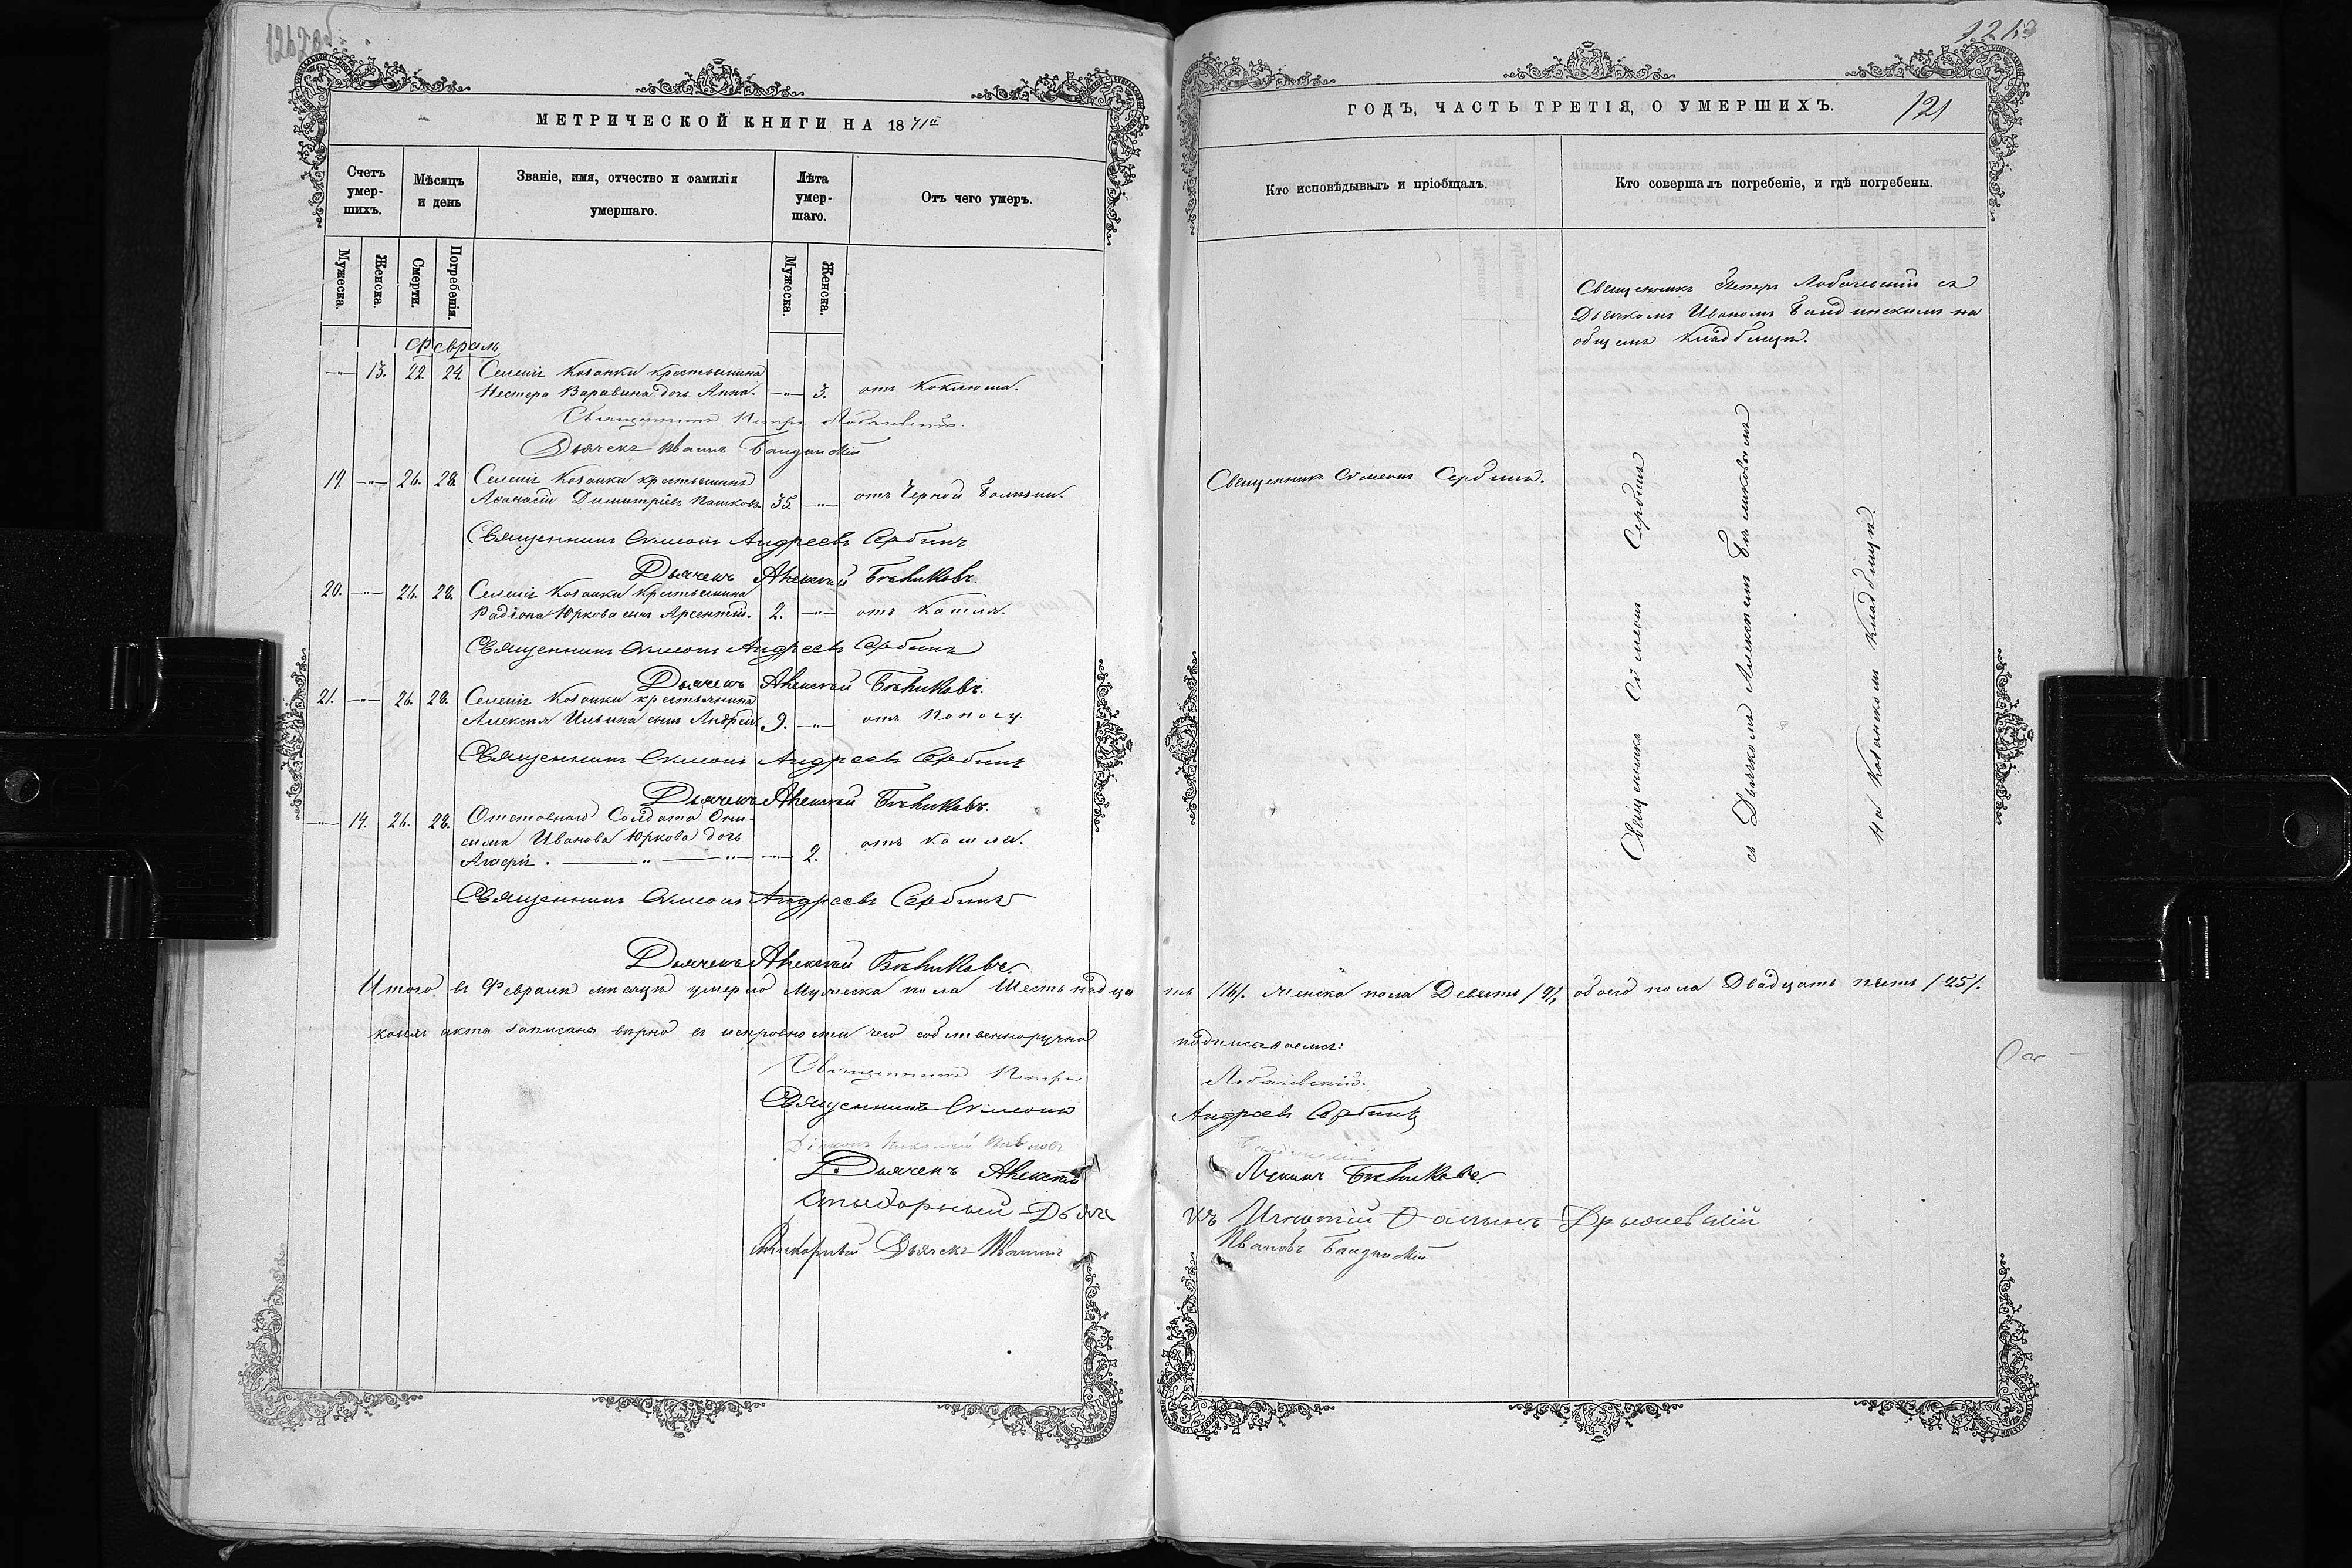 МЕТРИЧЕСКОЙ КНИГИ НА 1871й
Счетъ умер-шихъ.
Мѣсяцъ и день
Званіе, имя, отчество и фамилія умершаго.
Лѣта умер-шаго.
Отъ чего умеръ.
Мужеска.
Женска.
Смерти.
Погребенія.
Мужеска.
Женска.
Февраль
13. 22. 24. Селенія Козанки крестьянина
Нестера Варавина дочь Анна. 3. отъ Коклюша.
Священникъ Петръ Лобачевскій.
Дьячекъ Иванъ Бандинскій
19. 26. 28. Селенія Козанки крестьянинъ
Аѳанасій Димитріевъ Пашковъ 35. отъ Черной болѣзни.
Священникъ Симеонъ Андреевъ Сербинъ
Дьячекъ Алексѣй
20. 26. 28. Селенія Козанки крестьянина
Радіона Юркова сынъ Арсентій. 2. отъ Кашля.
Священникъ Симеонъ Андреевъ Сербинъ
Дьячекъ Алексѣй
21. 26. 28. Селенія Козанки крестьянина
Алексѣя Ильина сынъ Андрей. 9. отъ Поносу.
Священникъ Симеонъ Андреевъ Сербинъ
Дьячекъ Алексѣй
14. 26. 28. Отставнаго Солдата Они-
сима Иванова Юркова дочь
Агафія. 2. отъ Кашля.
Священникъ Симеонъ Андреевъ Сербинъ
Дьячекъ Алексѣй
Итого въ Февралѣ мѣсяцѣ умерло Мужеска пола Шестьнадца
коихъ акта записана вѣрно въ исправности чего собственноручно
Священникъ Петръ
Священникъ Симеонъ
Діаконъ
Дьячекъ Алексѣй
Дьяч
Дьячекъ Иванъ
ГОДЪ, ЧАСТЬ ТРЕТІЯ, О УМЕРШИХЪ.
121
Кто исповѣдывалъ и пріобщалъ.
Кто совершалъ погребеніе, и гдѣ погребены.
Священникъ Петръ Лобачевскій съ
Дьячкомъ Иваномъ Бандинскимъ на
общемъ Кладбищѣ.
Священникъ Симеонъ Сербинъ.
Священникъ Симеонъ Сербинъ
съ Дьячкомъ Алексѣемъ
На Козанскомъ Кладбищѣ.
ть /16/. Женска пола Девять /9/, обоего пола Двадцать пять /25/.
подписываемся:
Лобачевскій.
Андреевъ Сербинъ
Бандинскій
къ Игнатій
Ивановъ Бандинскій